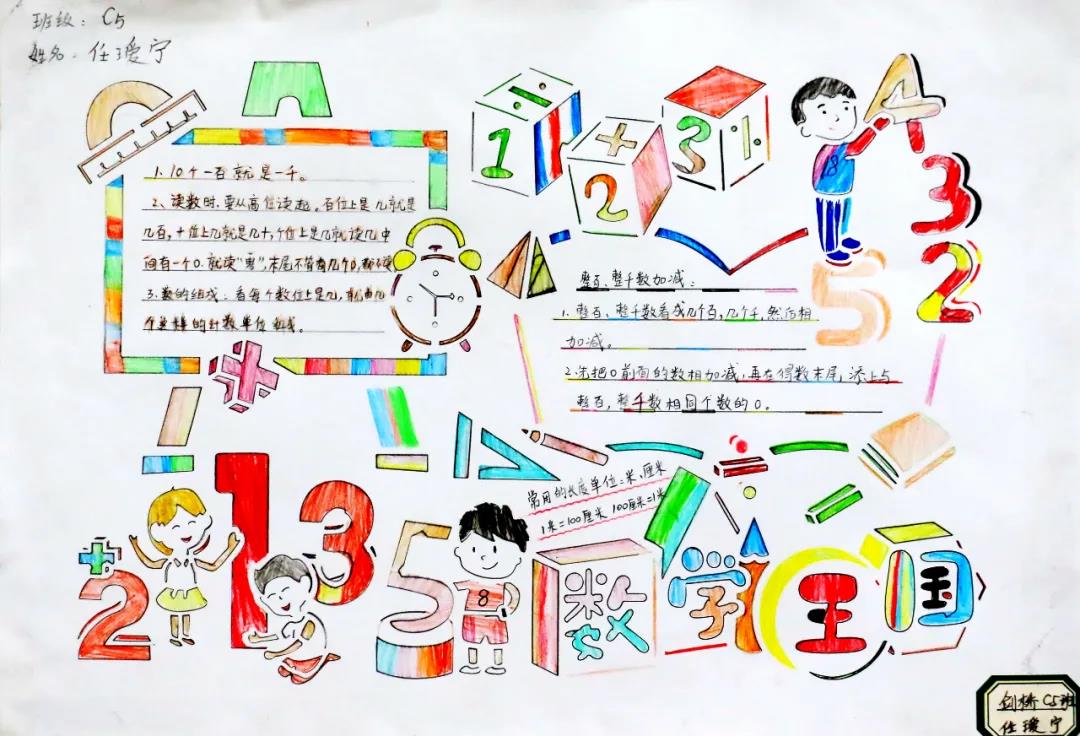 班级：C5
姓名：任瑷宁
1、10个一百就是一千。
2、读数时，要从高位读起。百位上是几就是
几百，十位上几就是几十，个位上是几就读几中
间有一个0.就读"零"，末尾不管有几个0，都不读
3.数的组成：看每个数位上是几，就由几
个这样的计数单位组成。
1 ÷
+ 2
3 ÷
4
3
2
5
整百、整千数加减：
1、整百、整千数看成几个百，几个千，然后相
加减。
2.先把0前面的数相加减，再在得数末尾添上与
整百，整千数相同个数的0。
常用的长度单位：米、厘米
1米=100厘米 100厘米=1米
+
2
1
3
5
8
数学王国
剑桥C5班
任瑷宁